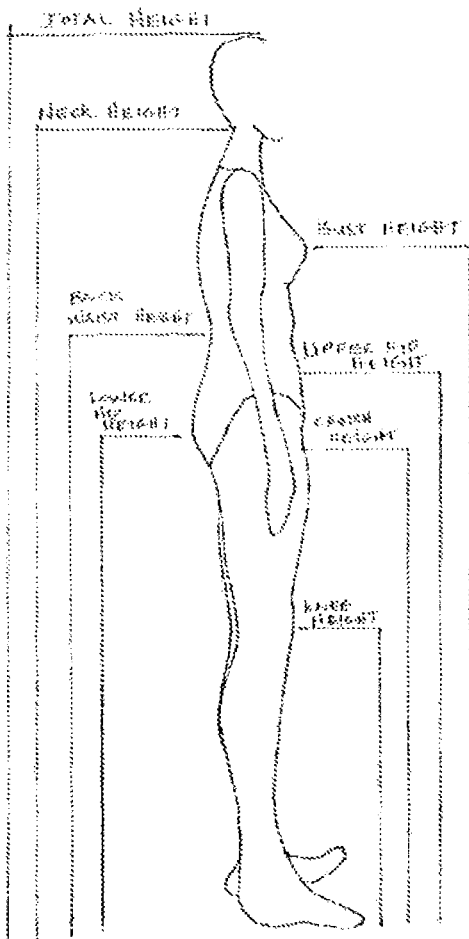 TOTAL HEIGHT
NECK HEIGHT
BUST HEIGHT
BACK
WAIST HEIGHT
UPPER HIP
HEIGHT
LOWER
HIP
HEIGHT
CROTCH
HEIGHT
KNEE
HEIGHT